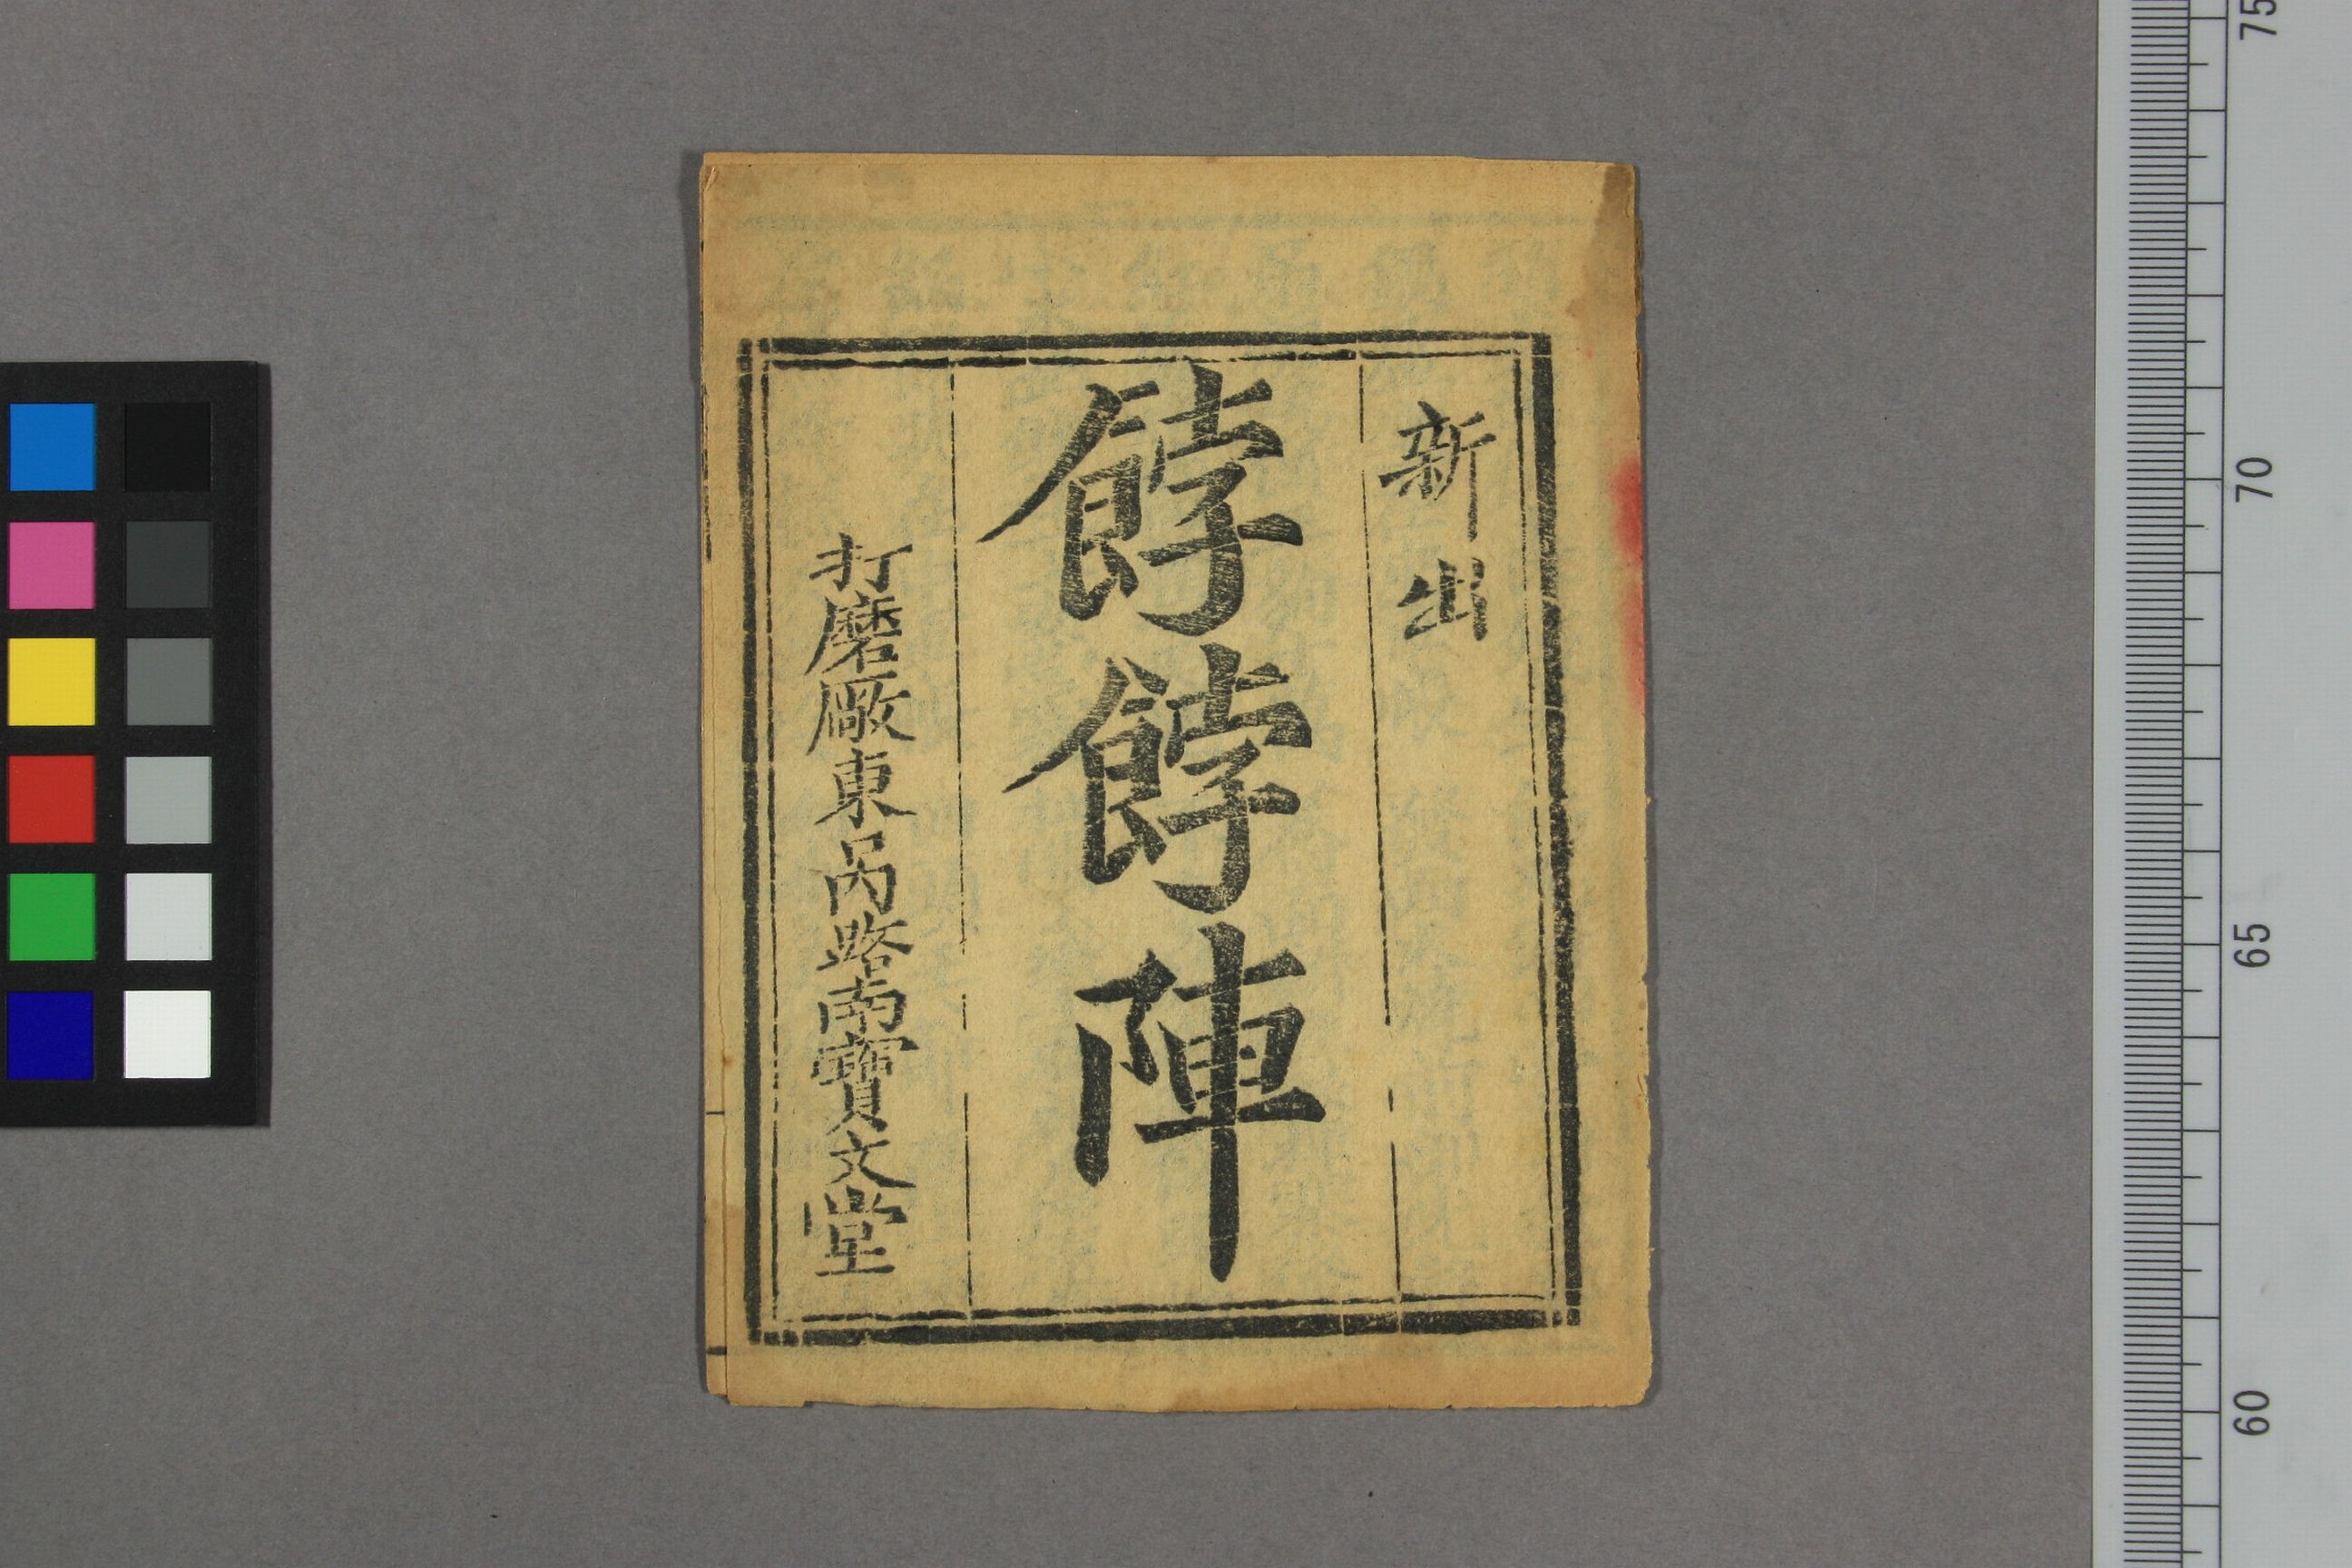 新出
餑餑陣
打磨廠東口內路南寶文堂
75
70
65
60